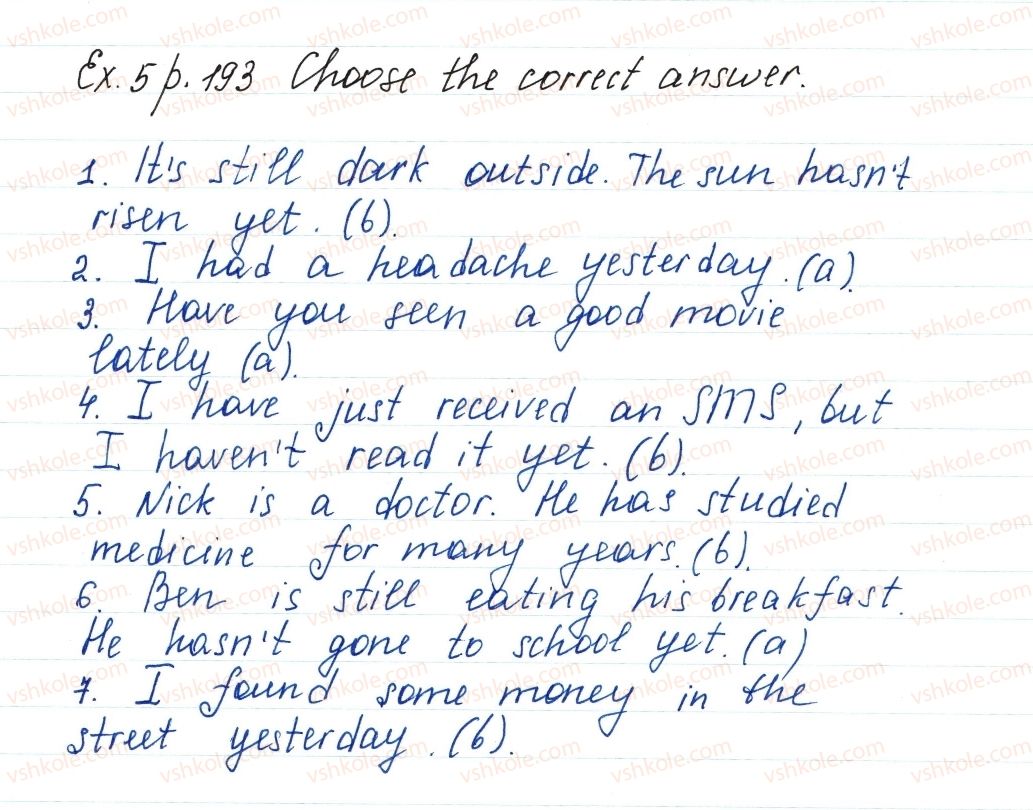 Ex. 5 p. 193 Choose the correct answer.
1. It's still dark outside. The sun hasn't
risen yet. (b).
2. I had a headache yesterday. (a).
3. Have you seen a good movie
lately (a).
4. I have just received an SMS, but
I haven't read it yet. (b).
5. Nick is a doctor. He has studied
medicine for many years. (b).
6. Ben is still eating his breakfast.
He hasn't gone to school yet. (a)
7. I found some money in the
street yesterday. (b).